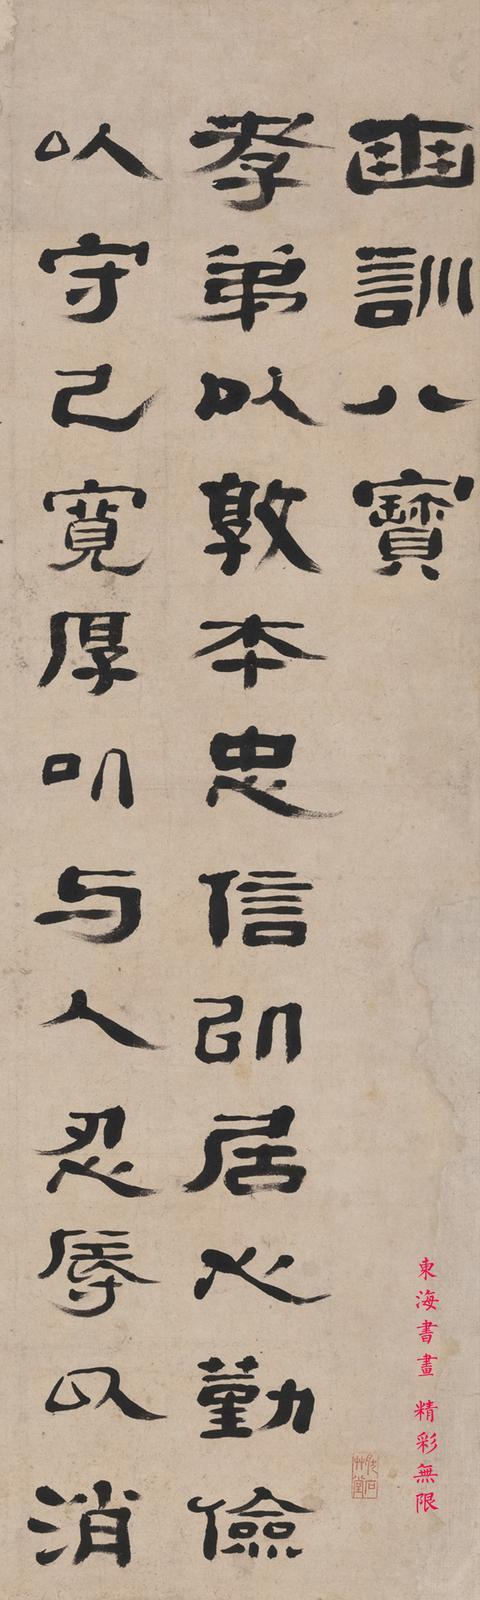 訓八寶
孝弟以敦本忠信以居心勤儉
以守己寬厚以与人忍辱以消
東海書畫 精彩無限